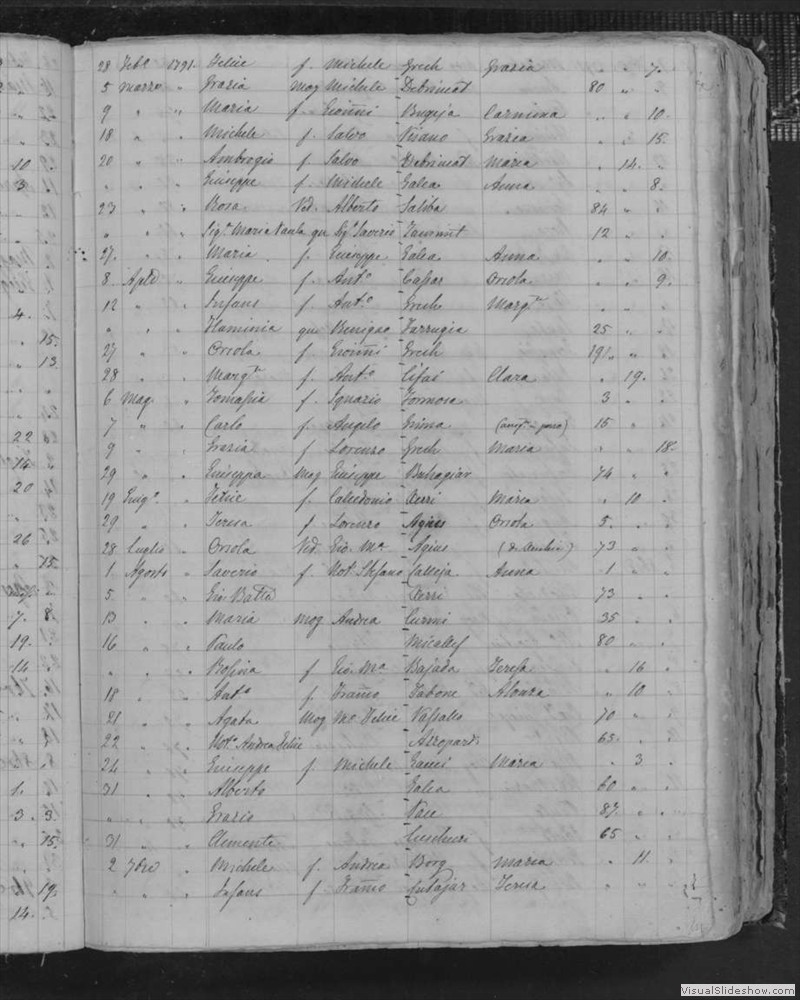 28 Feb.º 1791 Felice f. Michele Grech Grazia " " 7.
5 marzo " Grazia mog Michele Debrincat 80 " "
9 " " Maria f. Gioñni Bugeja Carmina " " 10.
18 " " Michele f. Salvo Pisano Grazia " " 15.
20 " " Ambrogio f. Salvo Debrincat Maria " 14. "
" " " Giuseppe f. Michele Galea Anna " " 8.
23 " " Rosa Ved. Alberto Saliba 84 " "
" " " Sig.ª Maria Paula qu Sig.º Saverio 12 " "
27. " " Maria f. Giuseppe Galea Anna " " 10
8. Aple " Giuseppe f. Ant.º Caspar Orsola " " 9.
12 " " Infans f. Ant.º Grech Marg.ta " " "
" " " Flaminia qu Benigno Farrugia 25 " "
27 " " Orsola f. Gioñni Grech " "
28 " " Marg.ta f. Ant.º Cifai Clara " 19. "
6 Mag. " Tomasia f. Ignazio Formosa 3 " "
7 " " Carlo f. Angelo Grima 15 " "
9 " " Grazia f Lorenzo Grech Maria " " 18.
29 " " Giuseppa Mog Giuseppe Buhagiar 74 " "
19 Giug.º " Felice f. Calcedonio Xerri Maria " 10 "
29 " " Teresa f Lorenzo Agius Orsola 5. " "
28 Luglio " Orsola Ved. Gio. Mª Agius 73 " "
1 Agosto " Saverio f. Not. Stefano Calleja Anna 1 " "
5 " " Gio Batta Xerri 73 " "
13 " " Maria mog Andrea Curmi 35 " "
16 " " Paulo Micallef 80 " "
" " " Rosina f Gio. Mª Bajada Teresa " 16 "
18 " " Ant.ª f. Frañco Tabone Alonza " 10 "
21 " " Agata Mog Mº Felice Vassallo 70 " "
22 " " Not. Andrea Felice Azzopardi 65 " "
24 " " Giuseppe f. Michele Gauci Maria " 3 "
31 " " Alberto Galea 60 " "
" " " Grazio Pace 87. " "
31 " " Clemente Cuschieri 65 " "
2 7bre " Michele f. Andrea Borg Maria " 11. "
" " " Infans f. Frañco Teresa " " "
10
3
4.
15.
13
22
14.
20
26
15.
7. 8.
19.
14
1.
3. 3
15.
19.
14.
VisualSlideshow.com